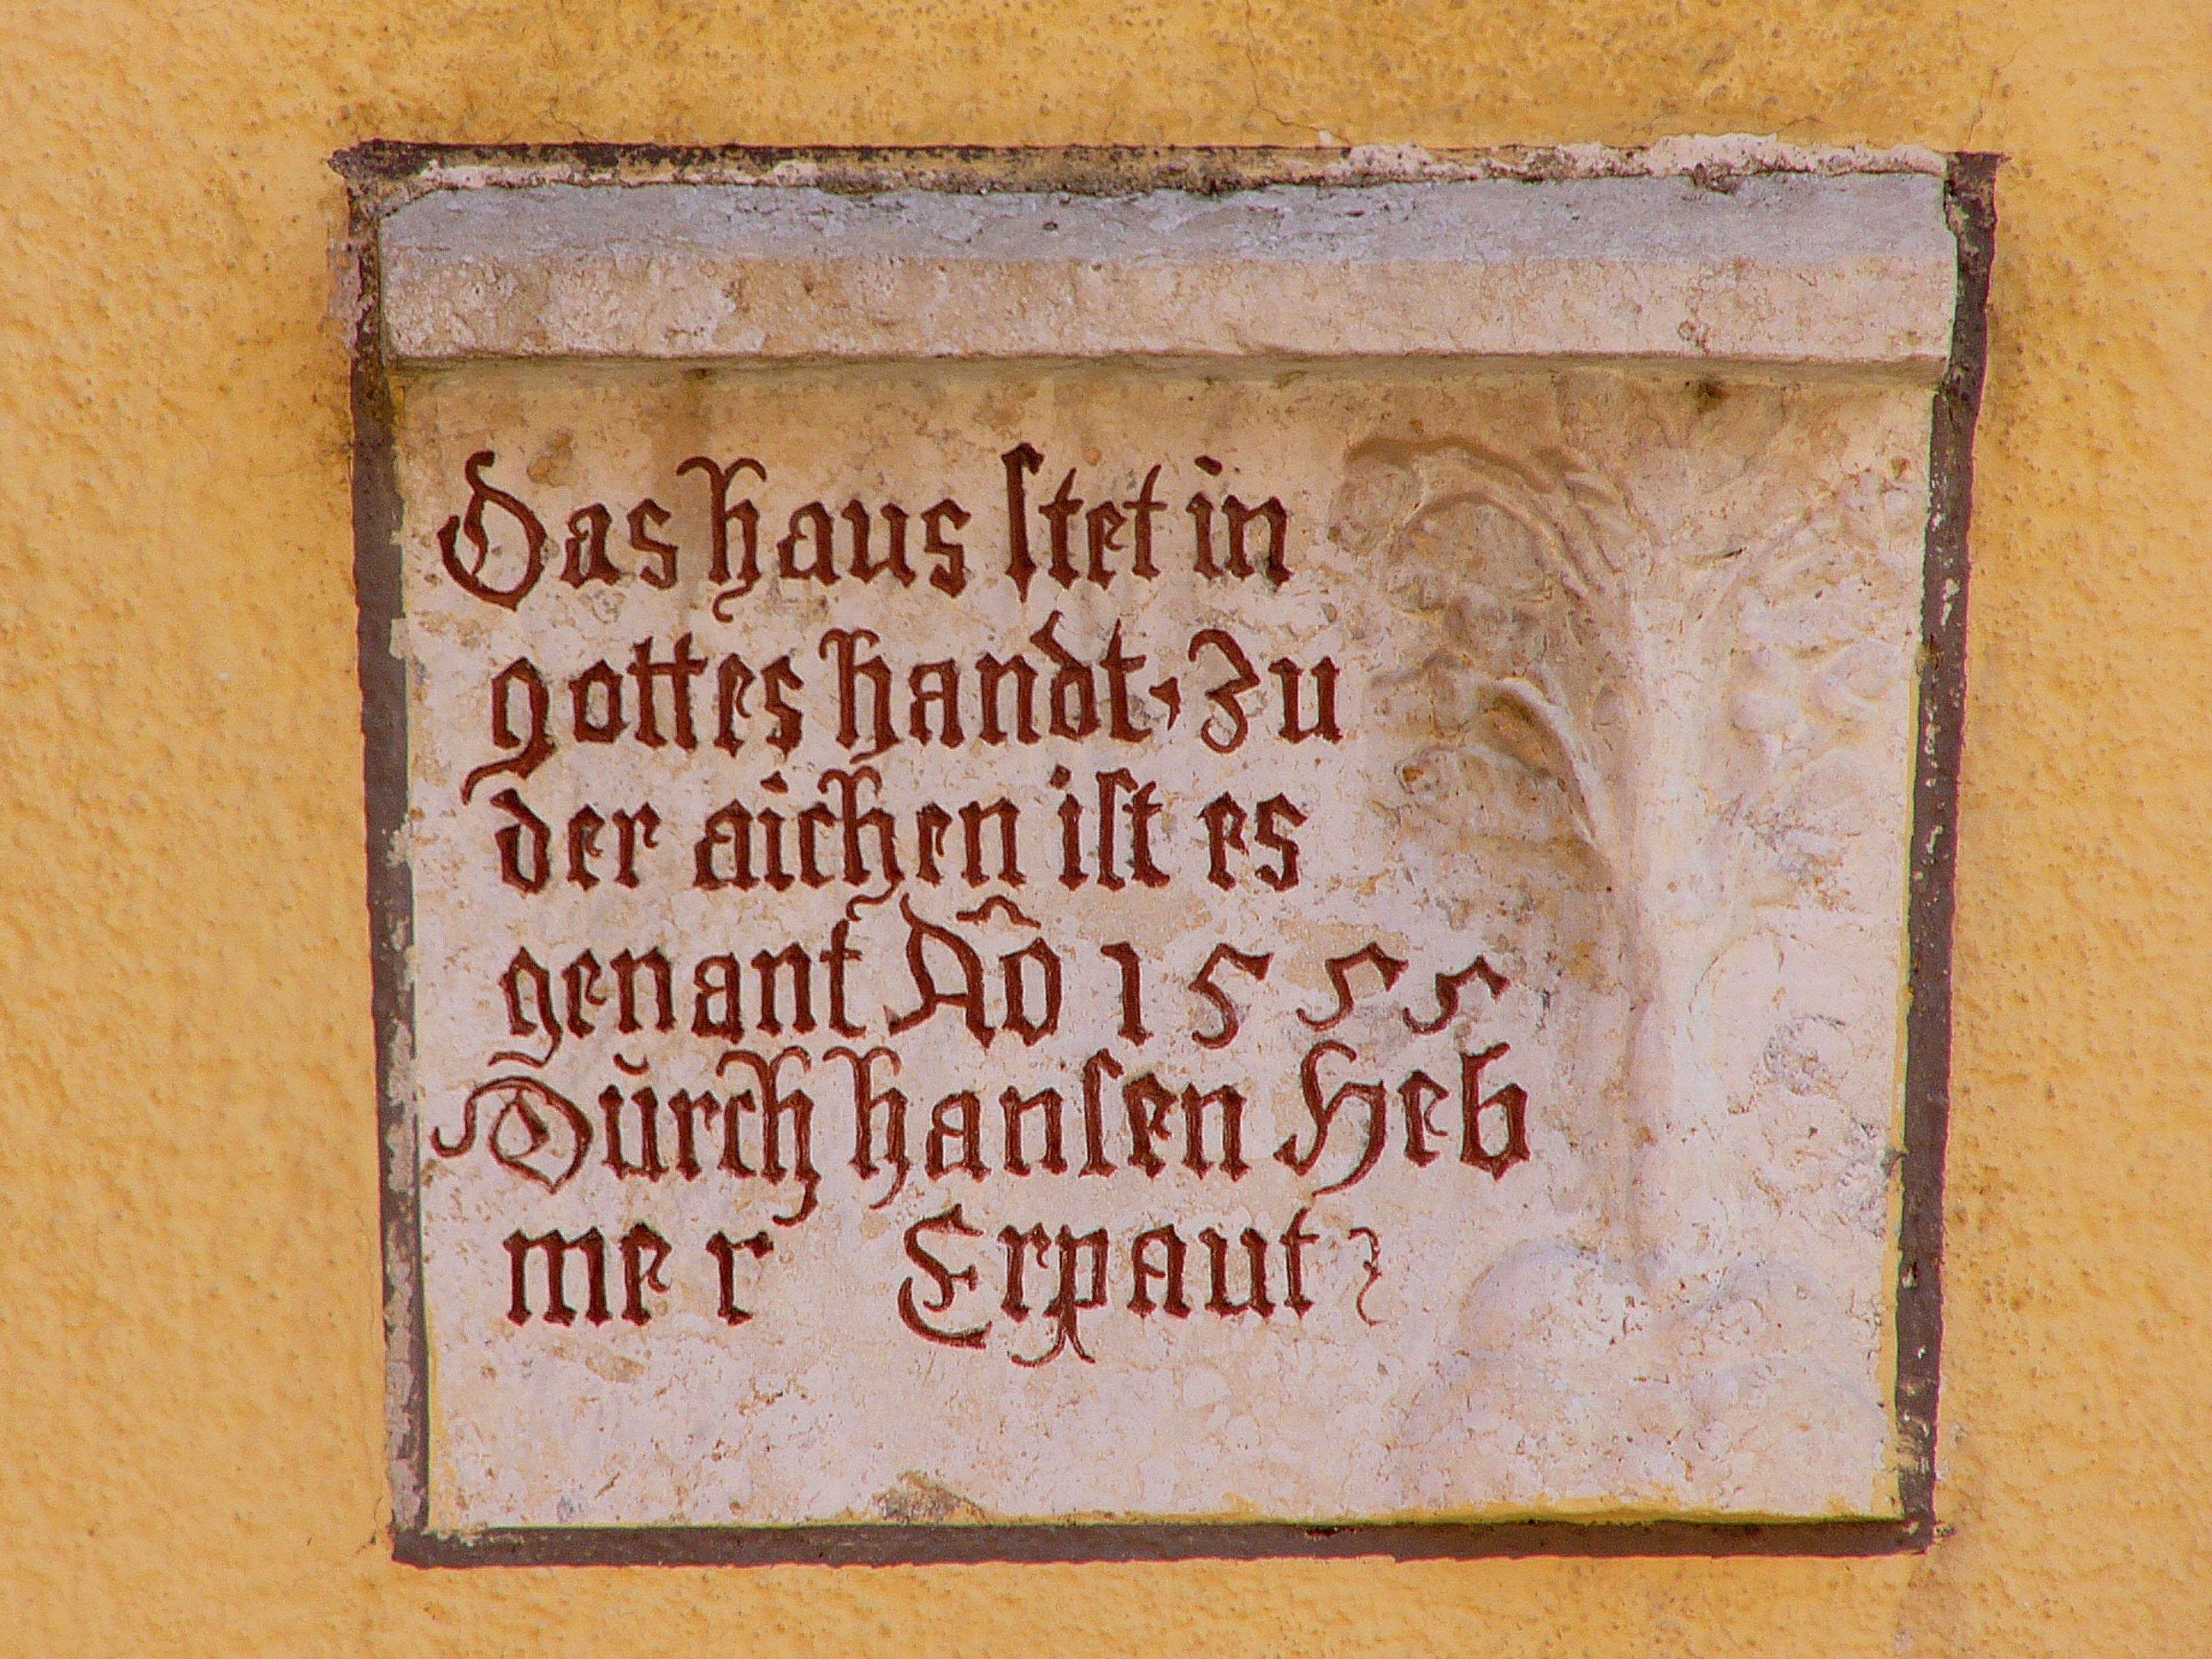 Das haus ſtet in
gottes handt, Zu
der aichen iſt es
genant Aº̂ 1555
Dŭrch hanſen Heb
mer Erpaut